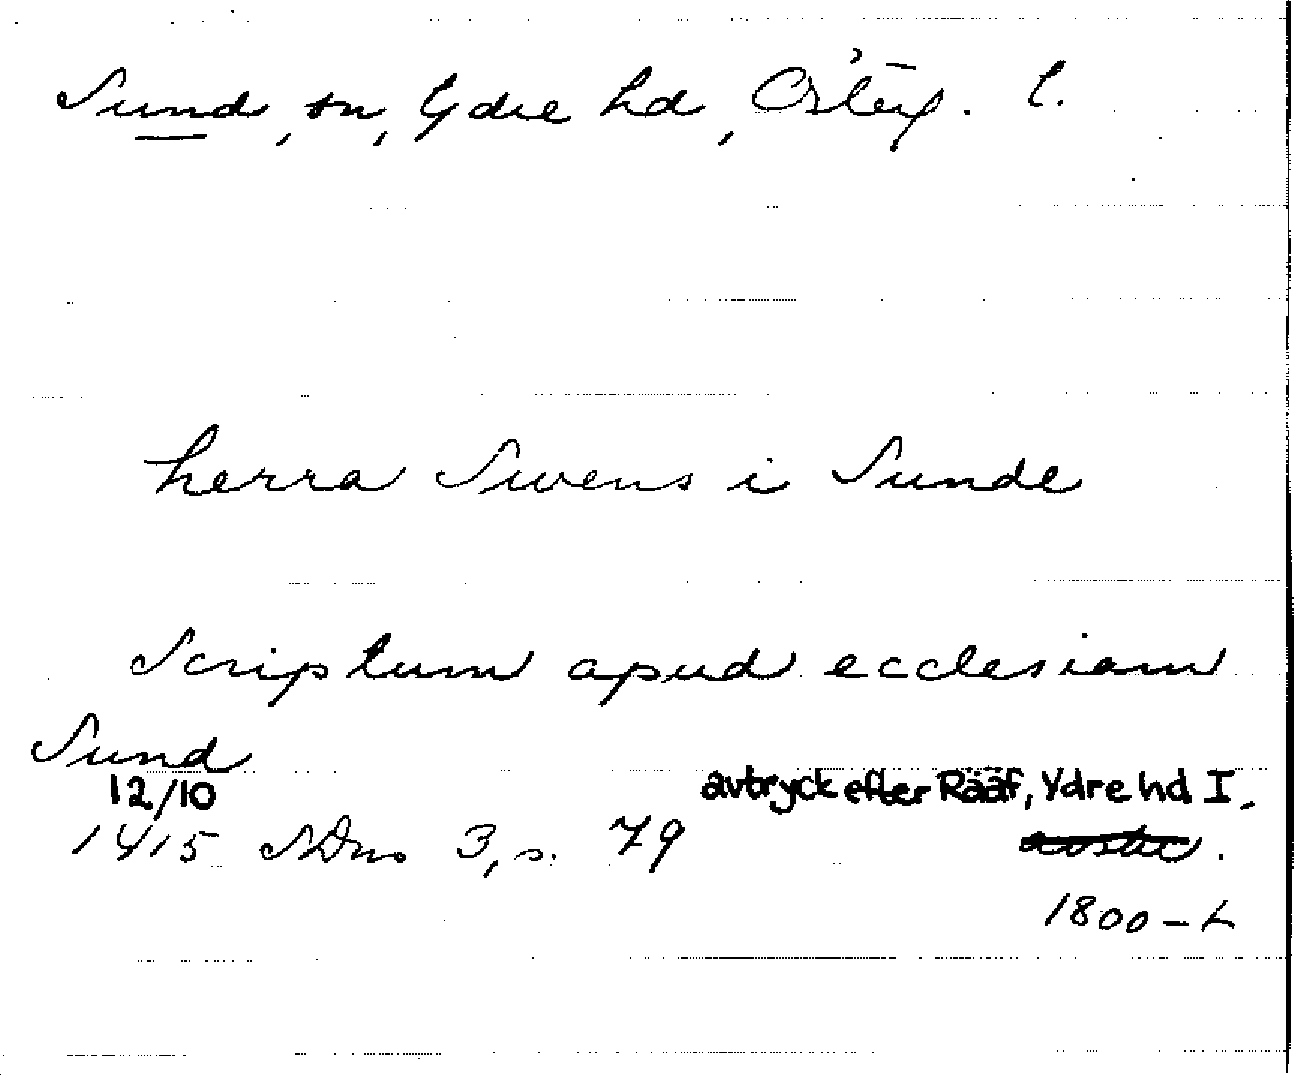 Sund, sn, Ydre hd, Österg. l.
herra Swens i Sunde
Scriptum apud ecclesiam
Sund
12/10 avtryck efter Rääf, Ydre hd I.
1415 SDns 3, s. 79
1800-t